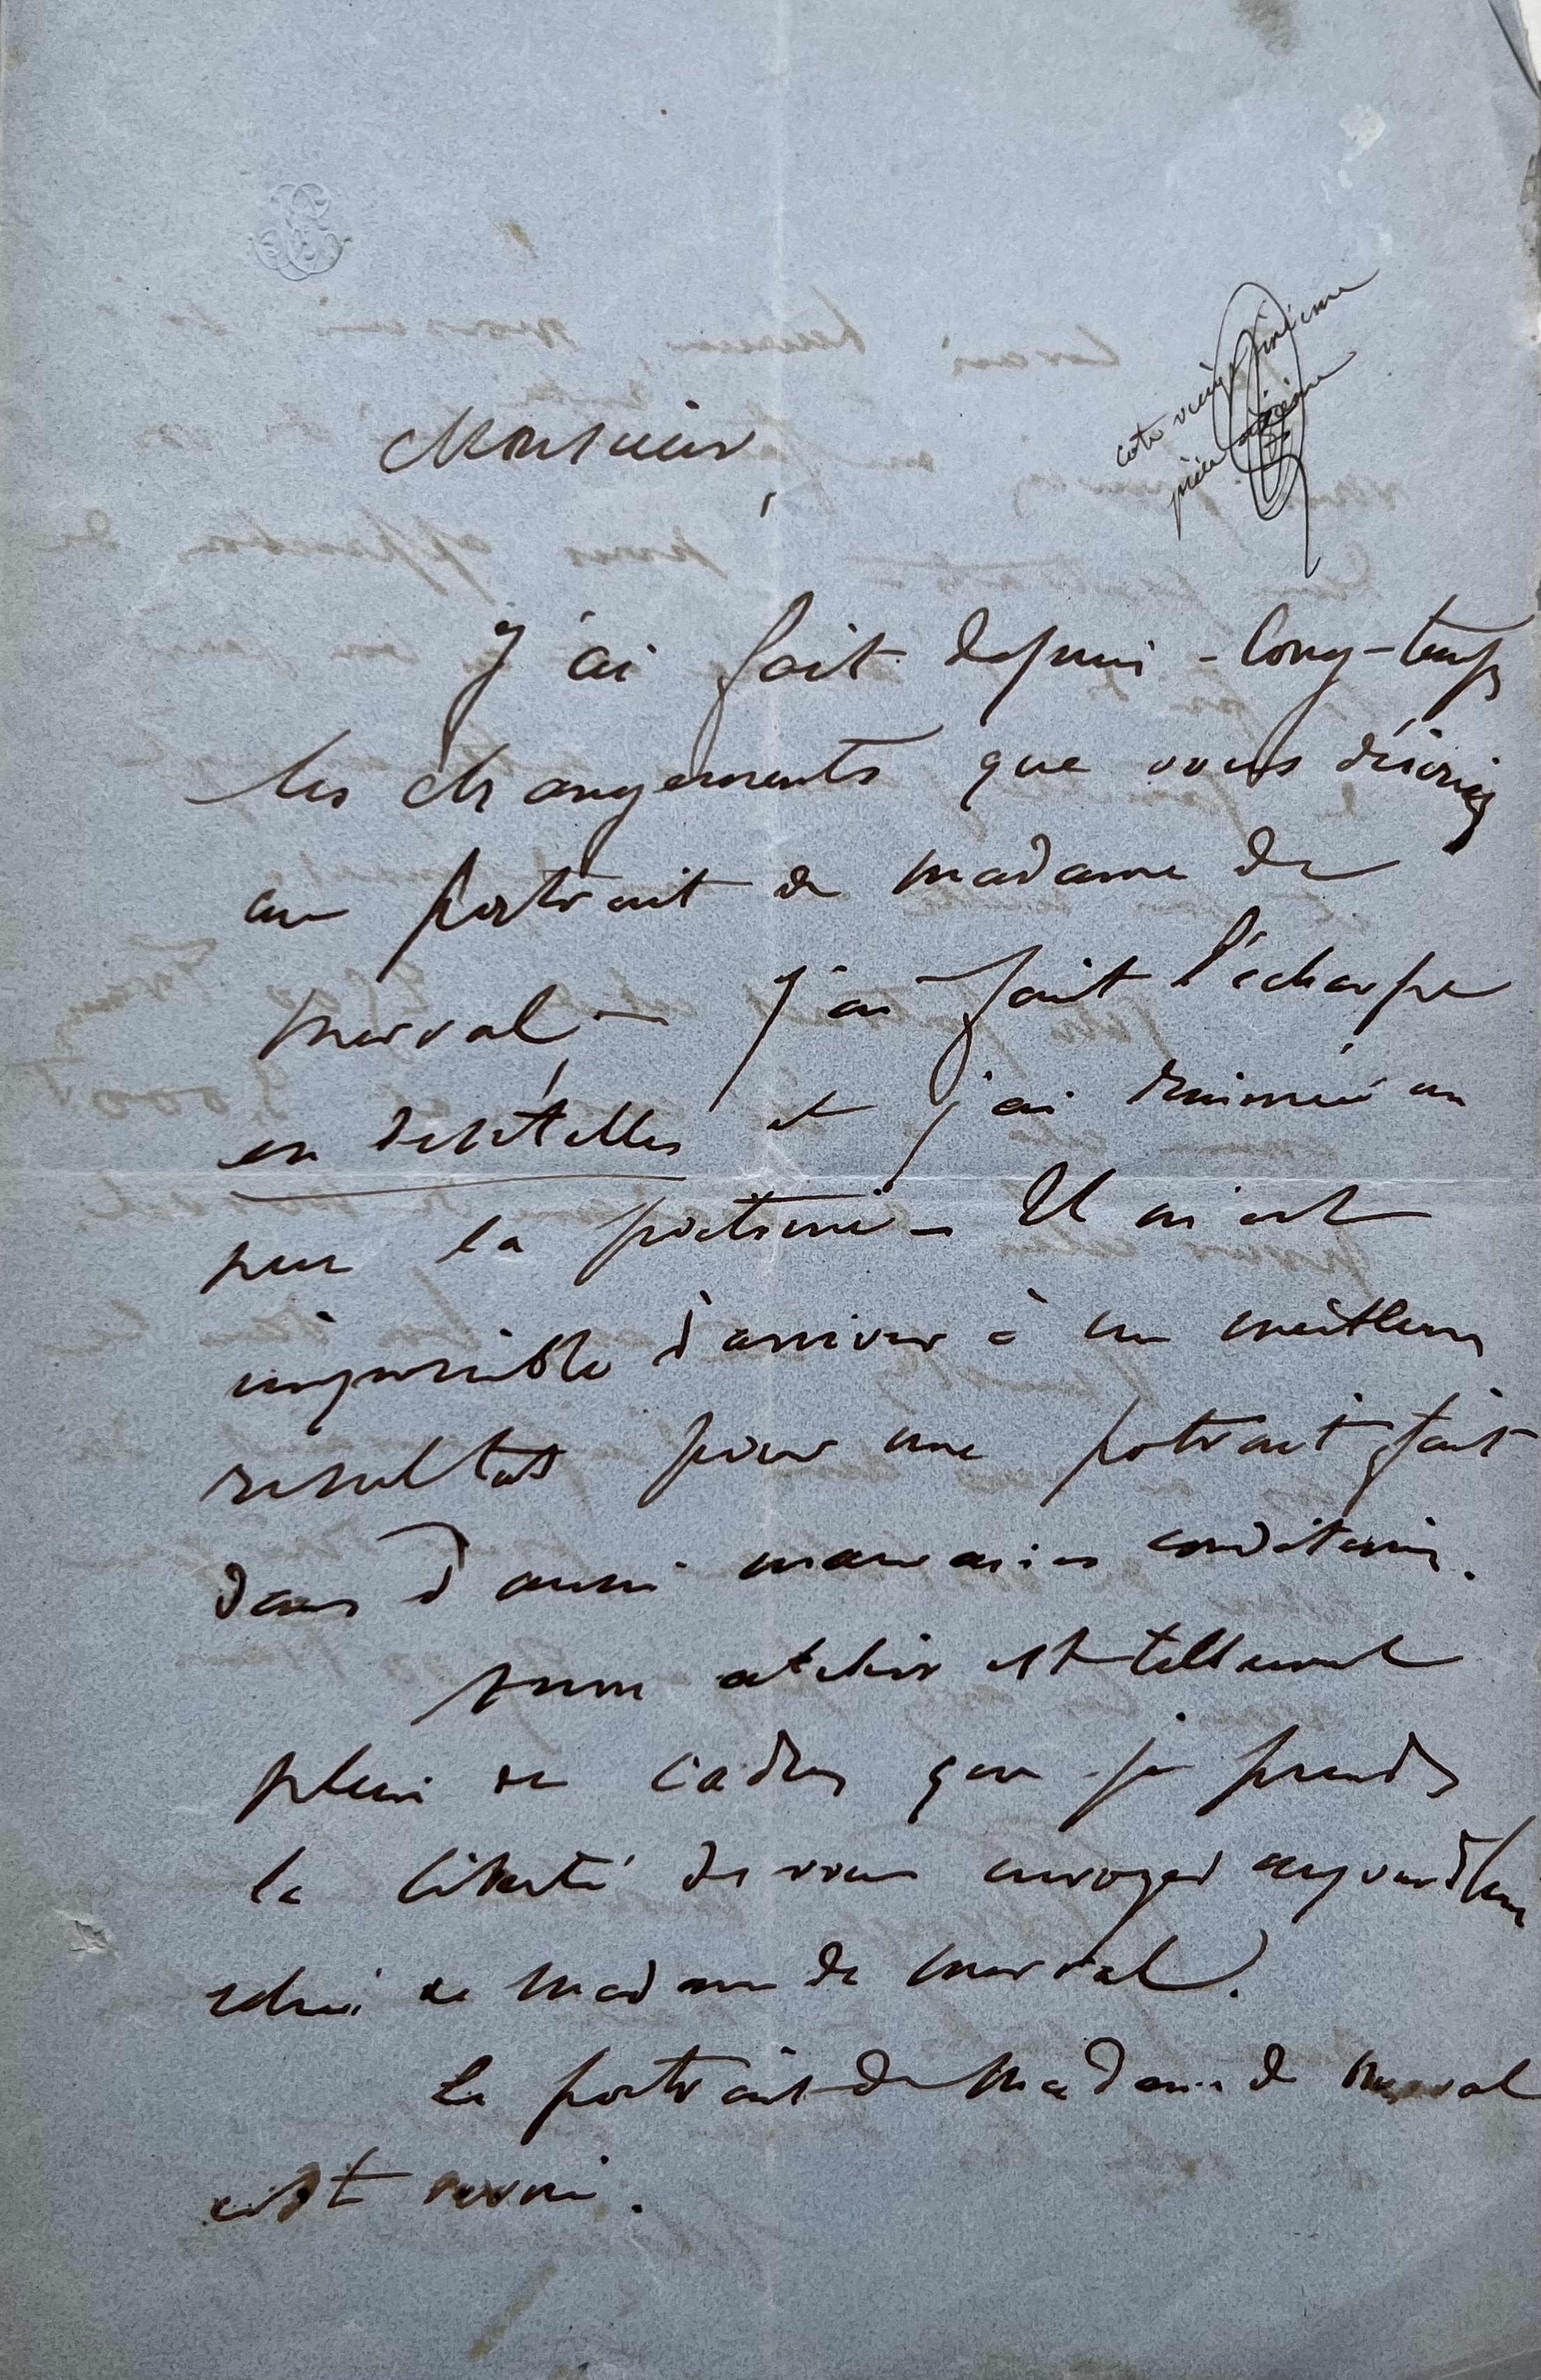 cote vingt
pièce
Monsieur,
J'ai fait depuis - long-temps
les changements que vous désiriez
au portrait de madame de
Merval - J'ai fait l'écharpe
en dentelles et j'ai diminué un
peu la poitrine - Il m'est
impossible d'arriver à un meilleur
resultat pour une potrait fait
dans d'aussi mauvaises conditions.
mon atelier est tellement
plein de cadres que je prends
la liberté de vous envoyer aujourd'hui
celui de Madame de Merval.
Le portrait de Madame de Merval
est verni.